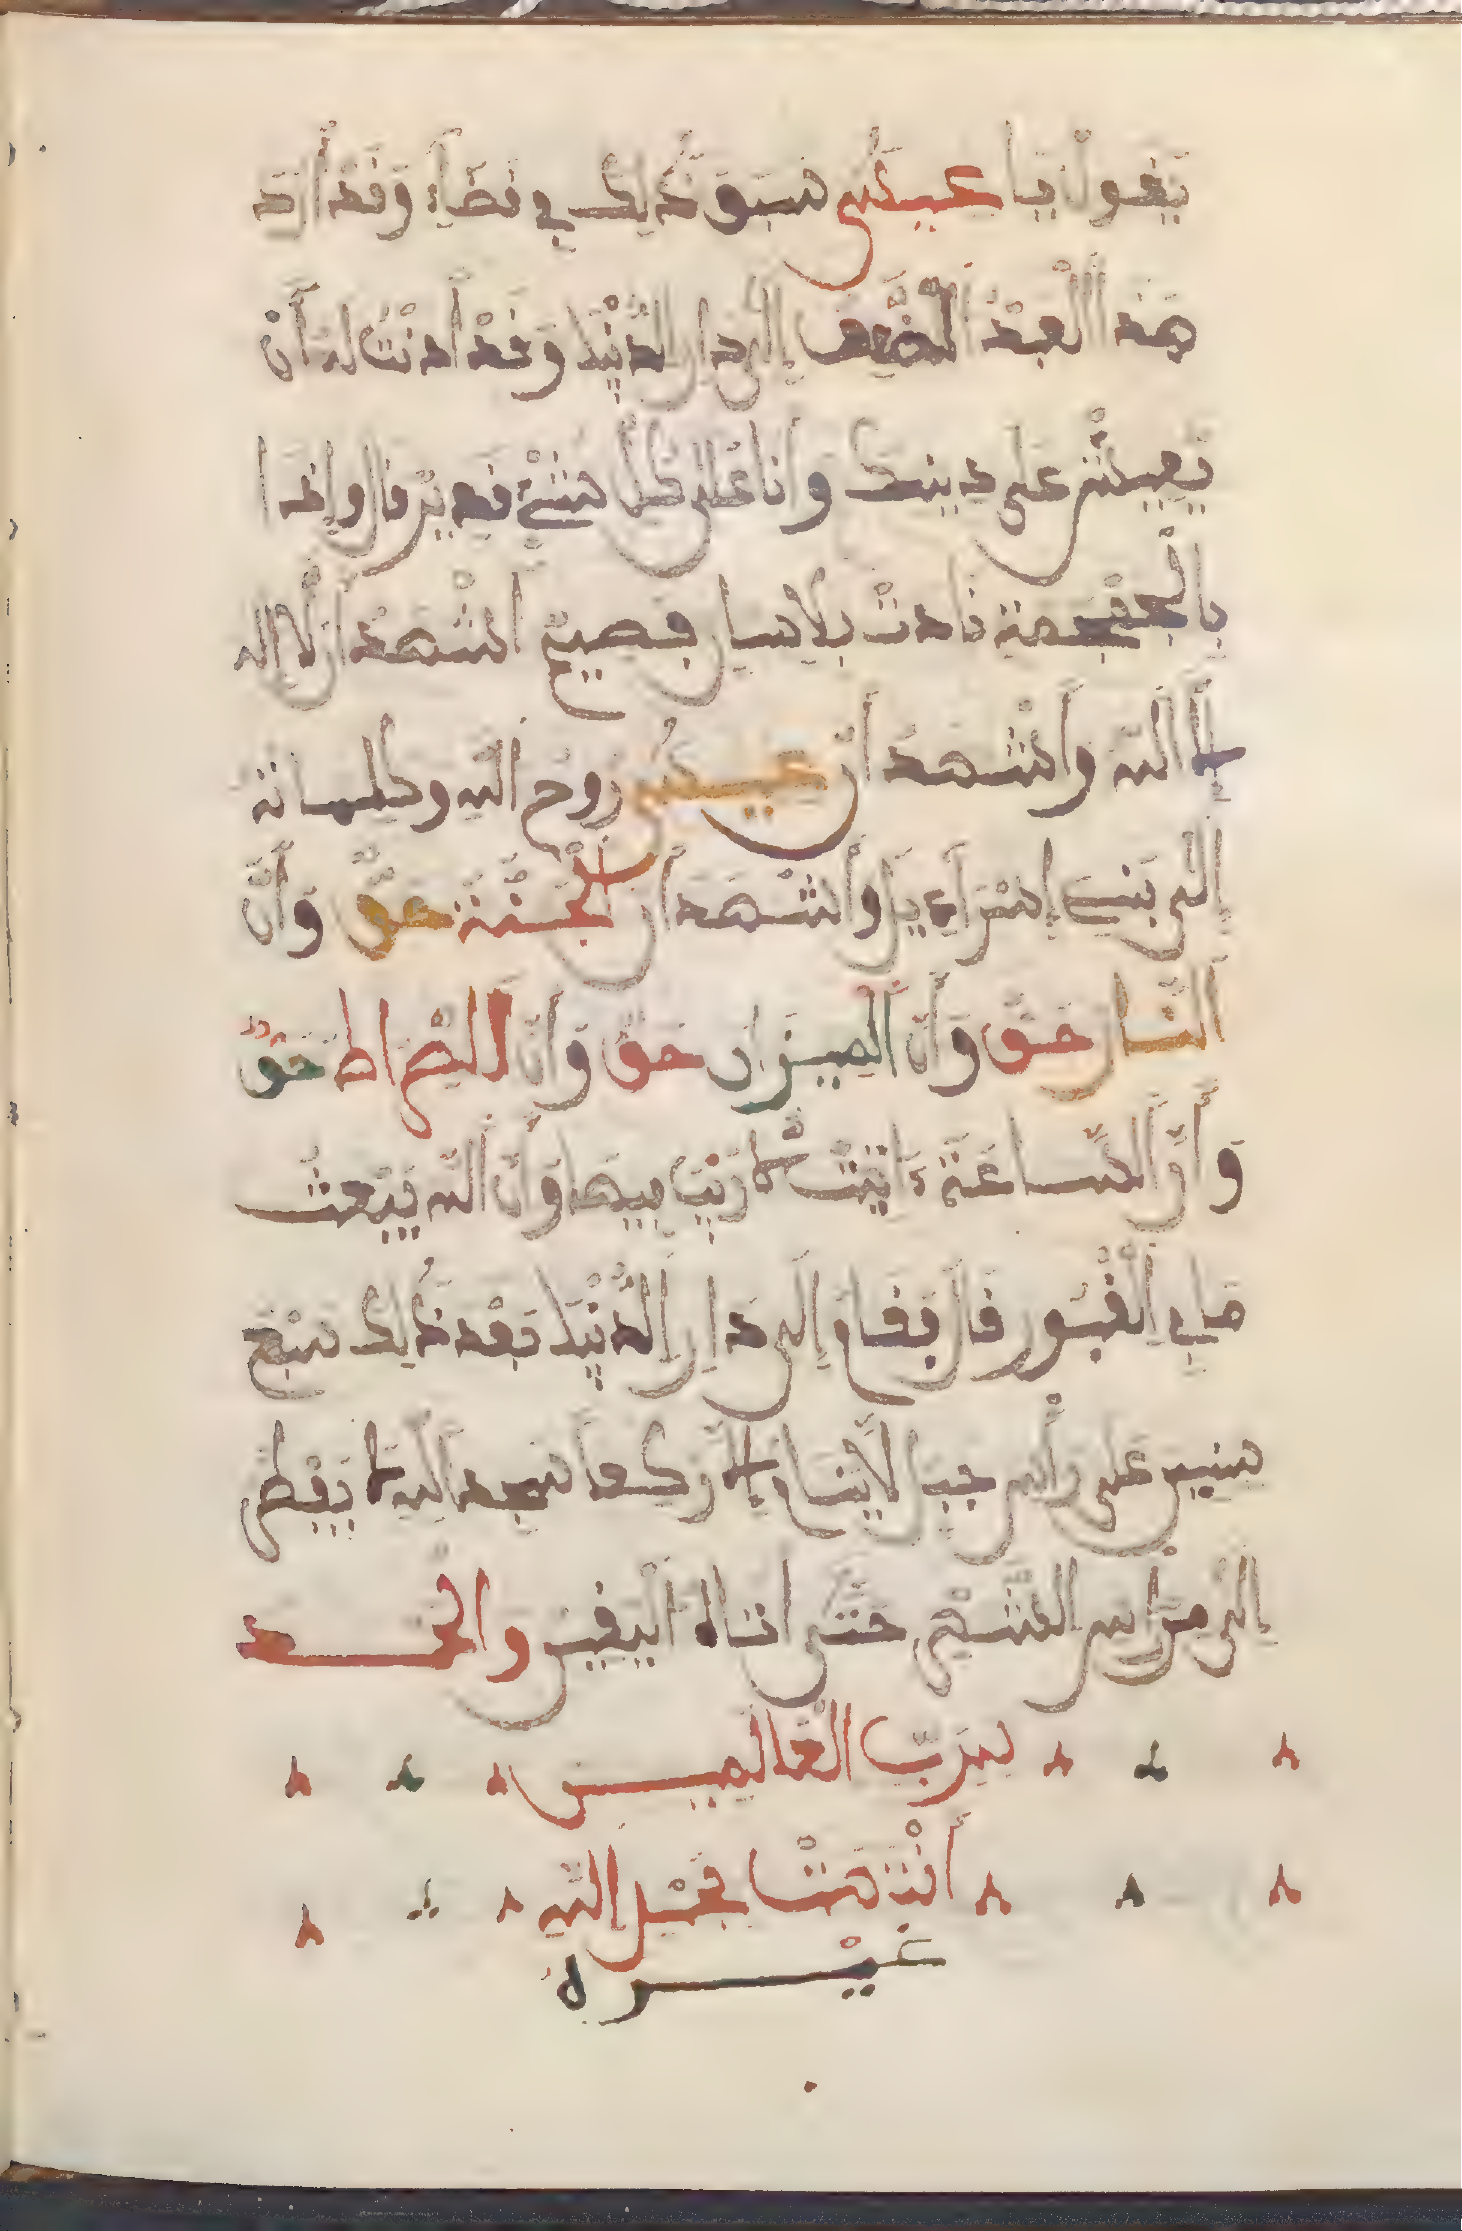 يَقول يا عيسى سبق ذٰلك في قضاءِ وَقد أرد
هَذا الْعبْد الضّعيف إلى دار الدُّنْيَا وَقدْ أذنْتُ لهُ أنْ
يَعيش على دينك وأنا على كل شيْء قدير قال وإذا
بالْجمْجمة نادتْ بلسان فصيح اشْهد أن لا إله
إلا الله وأشْهد أن عيسى رُوح الله وكلماته
إلى بَني إسْرَاءيل وأشْهَد أن الْجَنّة حقّ وَأنّ
النّار حَقّ وَأنّ الميزان حقّ وَأنّ الصّراط حَقّ
وَأنّ السّاعَة ءاتيَتْ لا رَيْبَ فيها وَأنّ الله يَبْعث
مَا في الْقبُور قال فقام إلى دَار الدُّنْيَا بَعْد ذٰلك سبْع
سنين على رأس جبل لا ينام إلا رَاكعا سَجدا لله لا يَفْطر
إلى من راس الشّهْر حَتّى اتاه اليَقين والْحمد
لله رَبّ الْعَالمين
أنْتَهَتْ بحَمْد الله
غَيْره